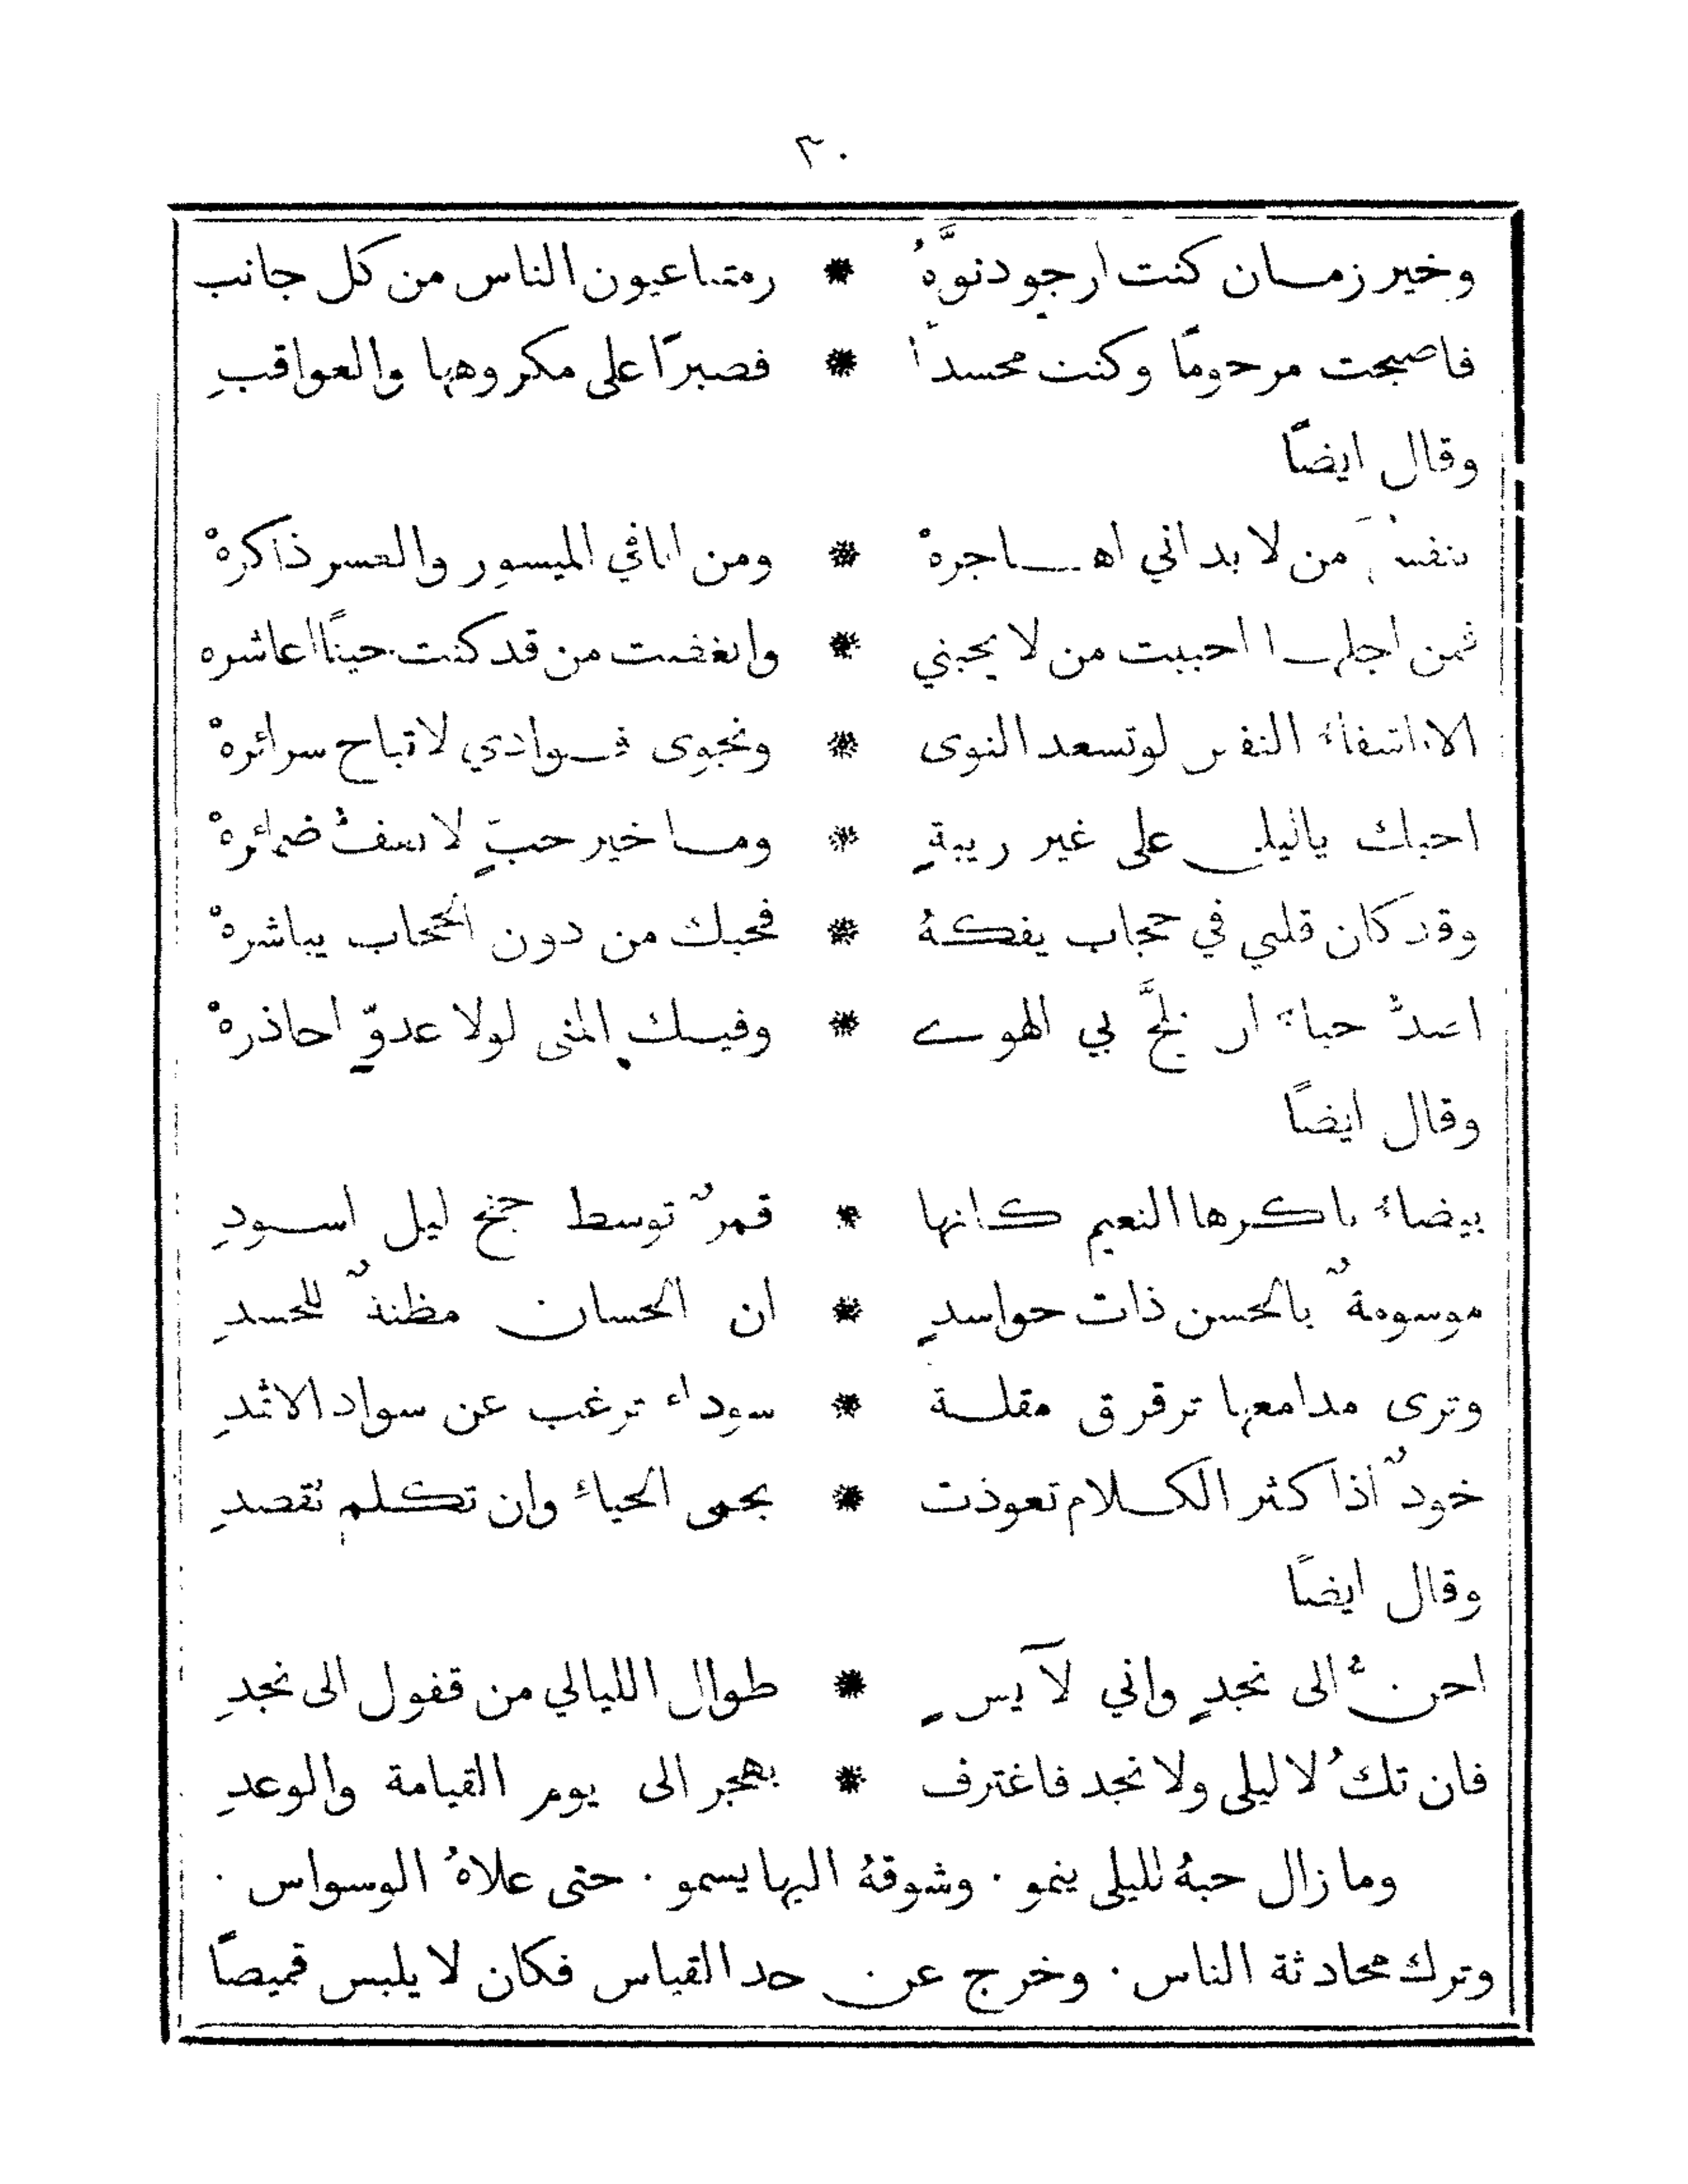 ٣٠
وخير زمان كنت ارجو دنوَّهُ * رمتنا عيون الناس من كل جانب
فاصبحت مرحومًا وكنت محسدًا * فصبرًا على مكروهها والعواقبِ
وقال ايضًا
بنفسي من لا بد اني اهاجرهْ * ومن انا في الميسور والعسر ذاكرهْ
فمن اجلها احببت من لا يحبني * وابغضت من قد كنت حينًا اعاشره
النفس لو تسعد النوى * ونجوى فوادي لا تباح سرائرهْ
احبك ياليلى على غير ريبةٍ * وما خير حبٍّ لا تعفُّ ضمائرهْ
وقد كان قلبي في حجاب يفكهُ * فحبك من دون الحجاب يباشرهْ
حياء لجَّ بي الهوى * وفيكِ المنى لولا عدوٍّ احاذرهْ
وقال ايضًا
بيضاءُ باكرها النعيم كانها * قمرٌ توسط جنح ليل اسودِ
موسومةٌ بالحسن ذات حواسدٍ * ان الحسان مظنةٌ للحسدِ
وترى مدامعها ترقرق مقلة * سوداء ترغب عن سواد الاثمدِ
خودٌ اذا كثر الكلام تعوذت * بحمى الحياءِ وان تكلم تقصدِ
وقال ايضًا
احنُّ الى نجدٍ واني لآيسٍ * طوال الليالي من قفول الى نجدِ
فان تكُ لا ليلى ولا نجد فاغترف * بهجر الى يوم القيامة والوعدِ
وما زال حبهُ لليلى ينمو . وشوقهُ اليها يسمو . حتى علاهُ الوسواس .
وترك محادثة الناس . وخرج عن حد القياس فكان لا يلبس قميصًا